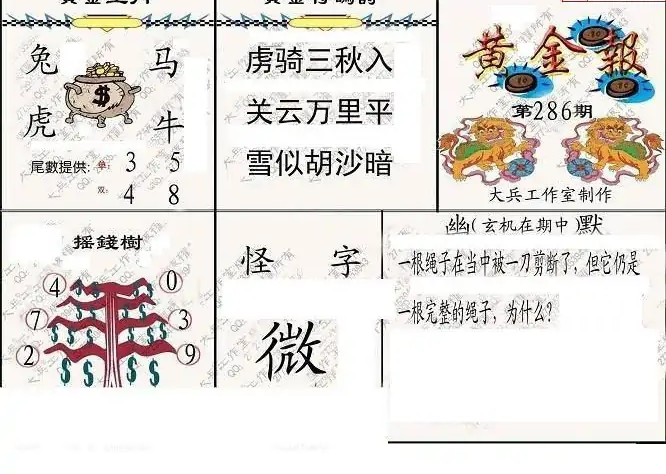 兔 马
虎 牛
尾數提供: 单: 3 5
双: 4 8
虏骑三秋入
关云万里平
雪似胡沙暗
黄金報
第286期
大兵工作室制作
摇錢樹
4 0
7 3
2 9
怪 字
微
幽(玄机在期中)默
一根绳子在当中被一刀剪断了，但它仍是
一根完整的绳子，为什么?